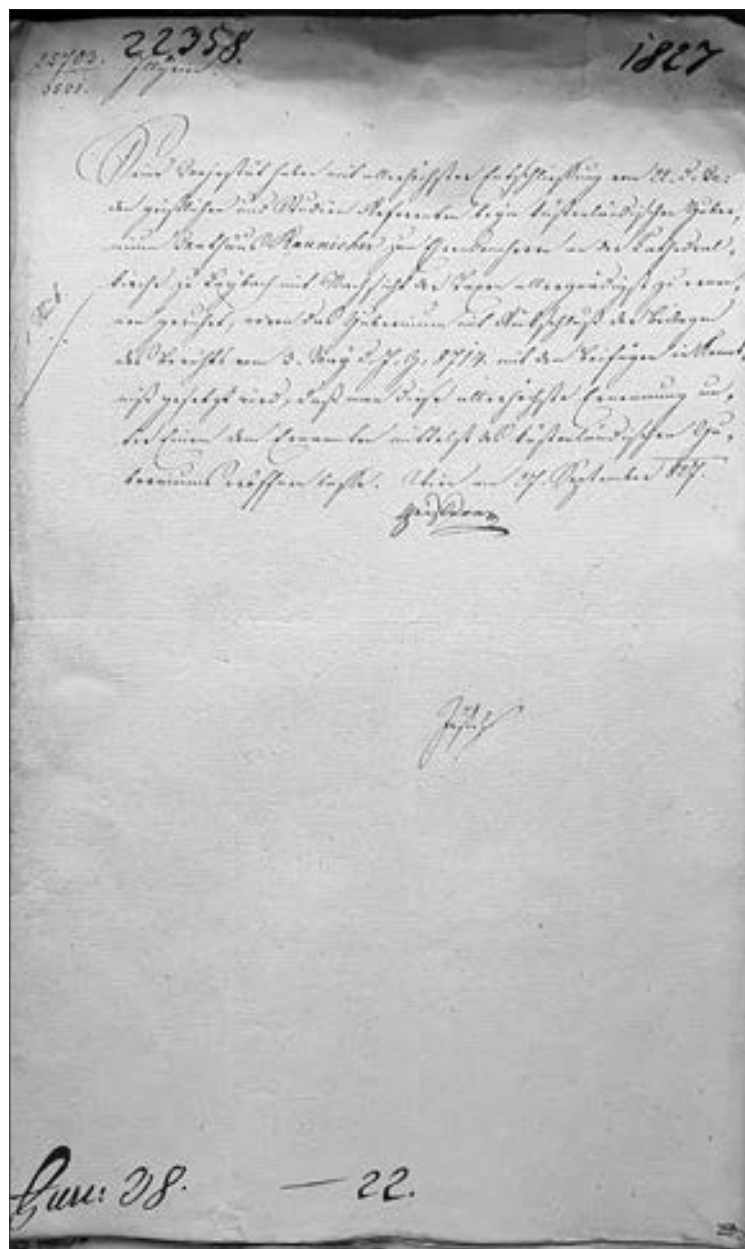 25703. 22358. 1827
Illyrien.
Seine Majestät haben mit allerhöchster Entschließung vom 21. d. M.
den geistlichen und Studien Referenten beym küstenländischen Guber,
nium Matthäus Raunicher zum Domherrn an der Kathedral,
kirche zu Laybach mit Nachsicht der Taxen allergnädigst zu ernen,
nen geruhet, wovon das Gubernium mit Rückschluß der Beilagen
des Berichts vom 3. May d. J. Z. 8714. mit dem Beifügen in Kennt,
niß gesetzt wird, daß man diese allerhöchste Ernennung un,
ter Einem dem Ernannten mittelst des küstenländischen Gu,
berniums eröffnen lasse. Wien am 27. September 827.
38. — 22.